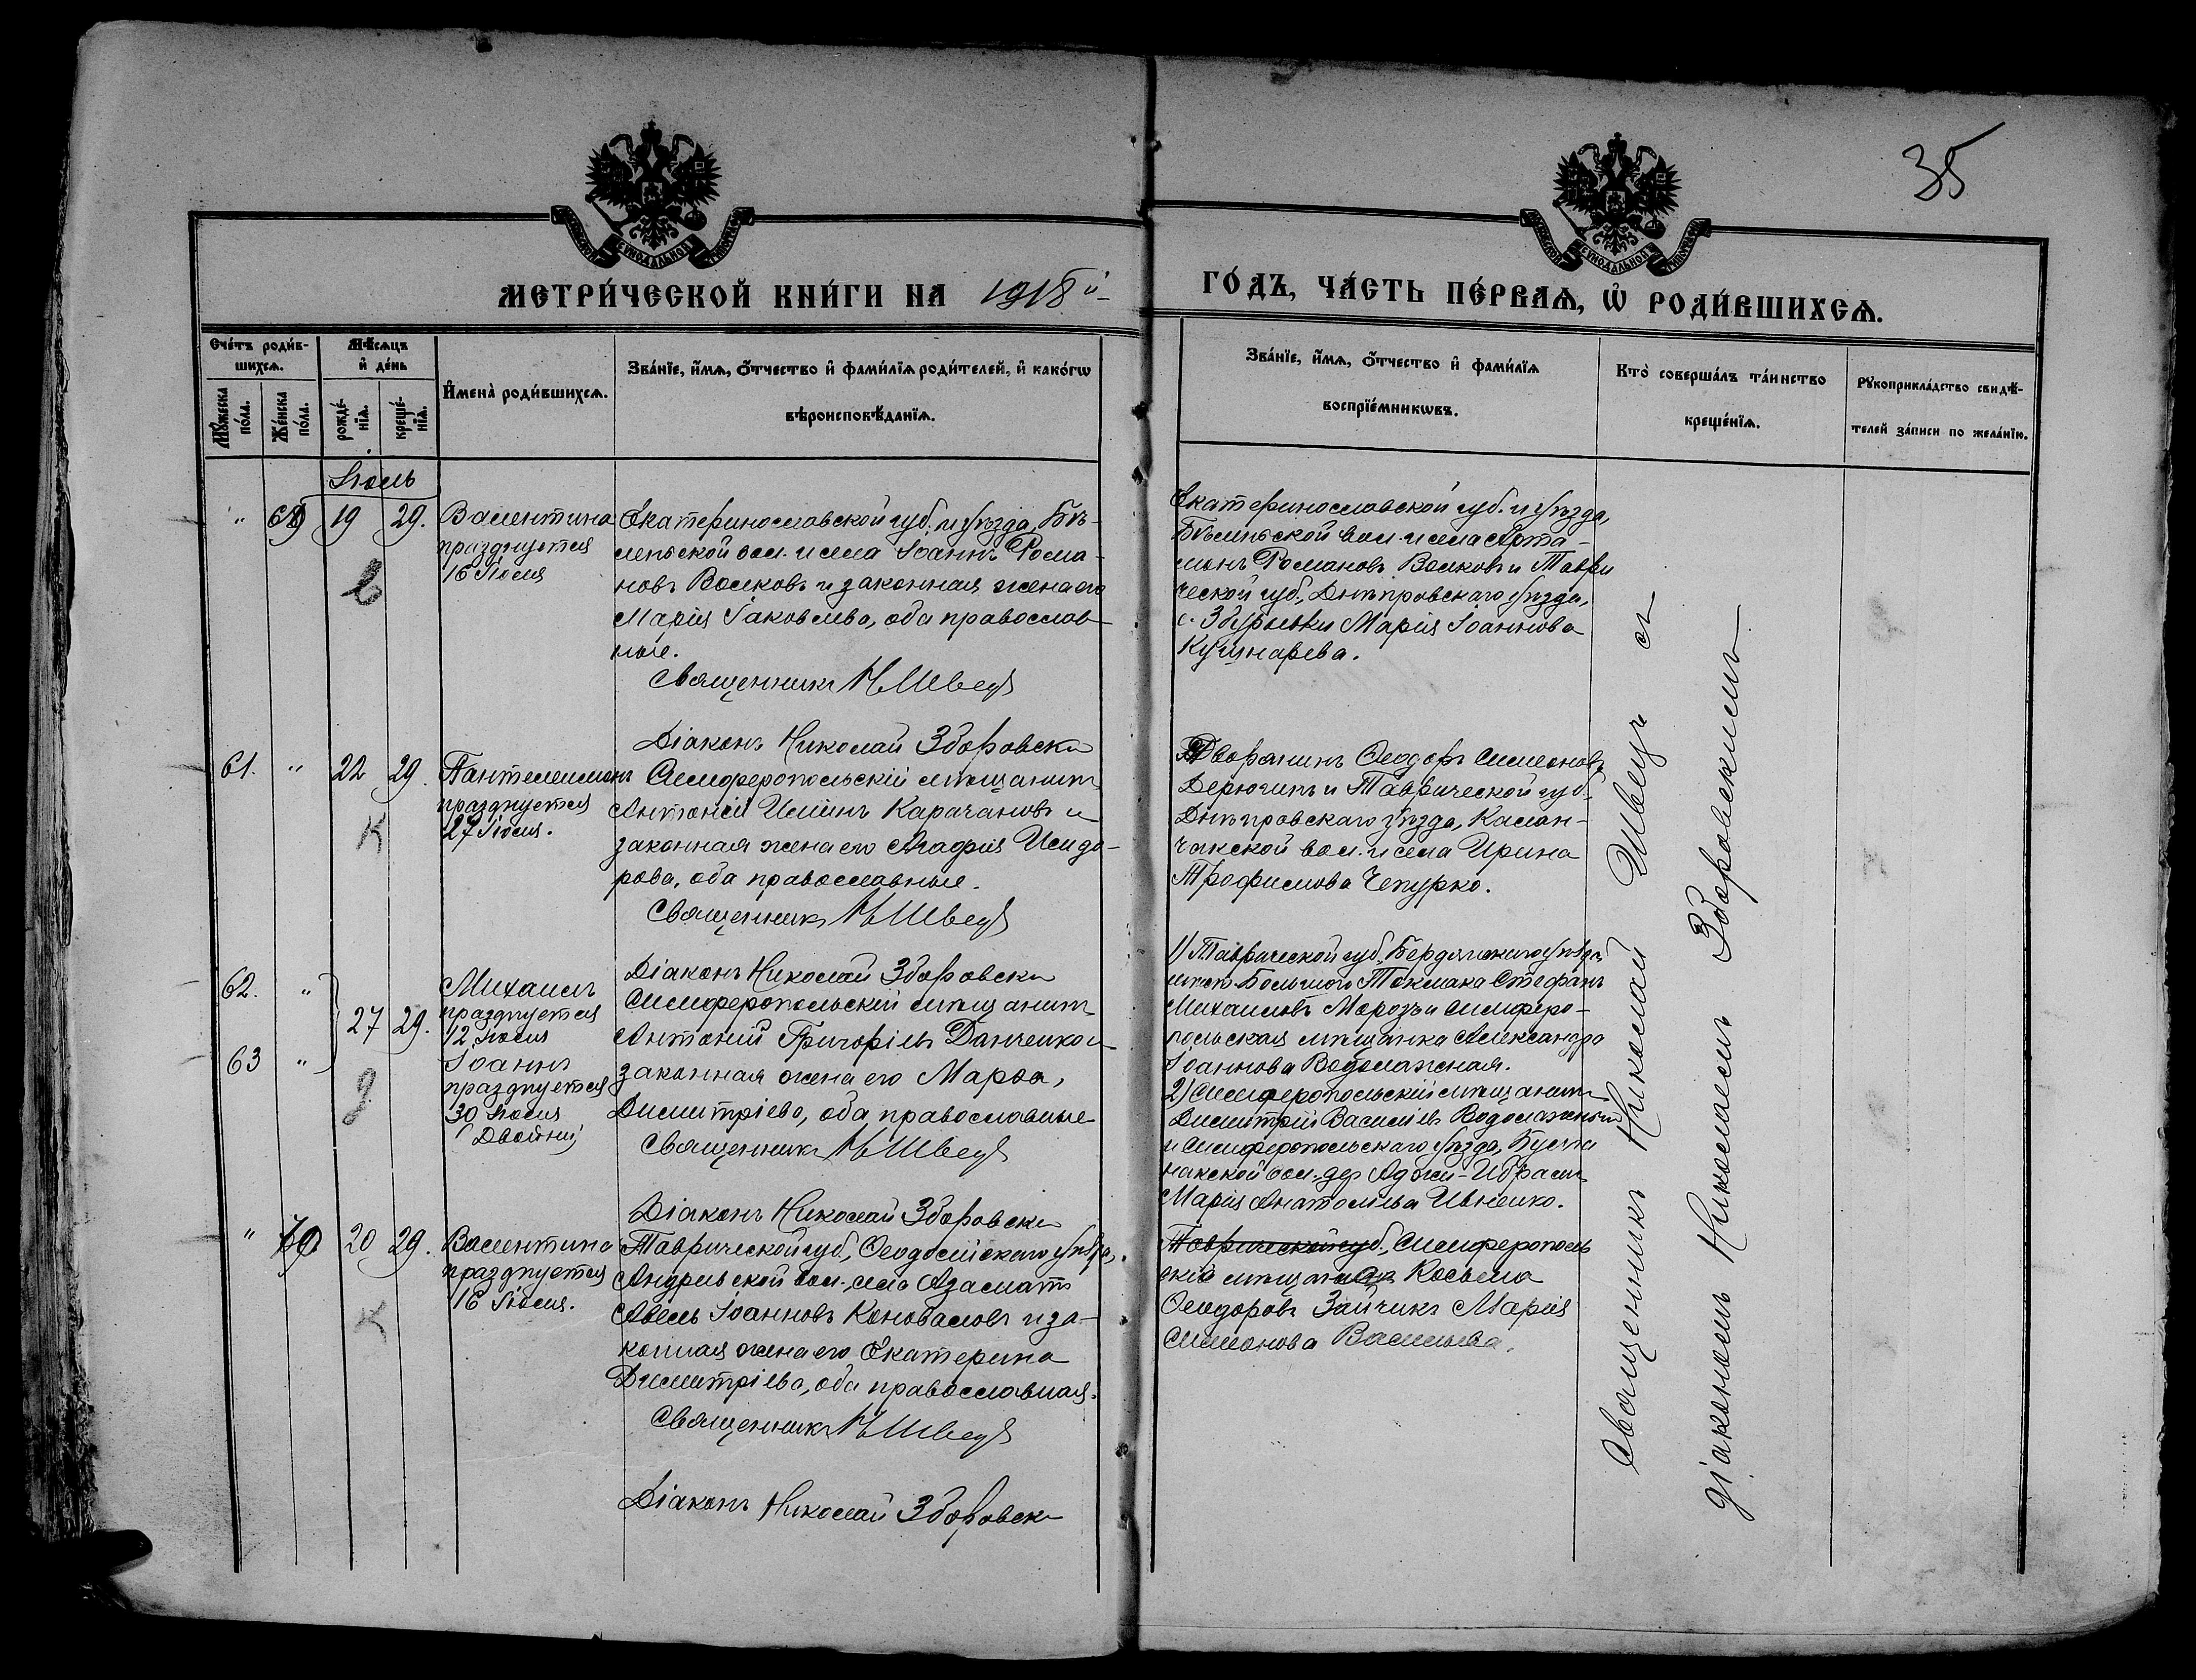 35
МЕТРИ́ЧЕСКОЙ КНИ́ГИ НА 1918й
ГО́ДЪ, ЧА́СТЬ ПЕ́РВАѦ, Ѽ РОДИ́ВШИХСѦ.
Сче́тъ роди́в-
шихсѧ.
Мѣ́сѧцъ
и҆ де́нь
Мꙋ́жеска
по́ла.
Же́нска
по́ла.
рожде́-
нїѧ.
креще́-
нїѧ.
И҆мена̀ роди́вшихсѧ.
Зва́нїе, и҆́мѧ, ѻ҆́тчество и҆ фами́лїѧ роди́телей, и҆ како́гѡ
вѣроисповѣ́данїѧ.
Зва́нїе, и҆́мѧ, ѻ҆́тчество и҆ фами́лїѧ
воспрїе́мникѡвъ.
Кто̀ соверша́лъ та́инство
креще́нїѧ.
Рꙋкоприкла́дство свидѣ́-
телей за́писи по жела́нїю.
Іюль
" 69 19 29.
Валентина
празднуется
16 Іюля
Екатеринославской губ. и уѣзда, Бѣ-
ленькой вол. и села Іоаннъ Рома-
новъ Волковъ и законная жена его
Марія Іаковлева, оба православ-
ные.
Священникъ Н Швецъ
Діаконъ Николай Зборовскі
Екатеринославской губ. и уѣзда,
Бѣленькой вол. и села Арта-
монъ Романовъ Волковъ и Таври
ческой губ., Днѣпровскаго уѣзда,
с. Збурьевки Марія Іоаннова
Кушнарева.
61. " 22 29.
Пантелеимонъ
празднуется
27 Іюля.
Симферопольскій мѣщанинъ
Антоній Карачановъ и
законная жена его Агафія Исидо-
рова, оба православные.
Священникъ Н Швецъ
Діаконъ Николай Зборовскі
Дворянинъ Ѳеодоръ Симеоновъ
Дерюгинъ и Таврической губ.
Днѣпровскаго уѣзда, Калан-
чакской вол. и села Ирина
Трофимова Чепурко.
62. "
63 "
27 29.
Михаилъ
празднуется
12 Іюля
Іоаннъ
празднуется
30 Іюля
(Двойни)
Симферопольскій мѣщанинъ
Антоній Григоріевъ Данченко и
законная жена его Марѳа
Димитріева, оба православные
Священникъ Н Швецъ
Діаконъ Николай Зборовскі
1) Таврической губ., Бердянскаго уѣзда
мѣст. Большого Токмака Стефанъ
Михаиловъ Морозъ и Симферо-
польская мѣщанка Александра
Іоаннова Водолажная.
2) Симферопольскій мѣщанинъ
Димитрій Василіевъ Водолажный
и Симферопольскаго уѣзда,
вол. дер. Аджи-Ибрамъ
Марія Анатоліева Ивненко.
" 70 20 29.
Валентина
празднуется
16 Іюля.
Таврической губ., Ѳеодосійскаго уѣзда,
Андреевской вол., села Азаматъ
Авель Іоанновъ Коноваловъ и за-
конная жена его Екатерина
Димитріева, оба православная.
Священникъ Н Швецъ
Діаконъ Николай Зборовскі
Таврической губ., Симферополь
скій Косьма
Ѳеодоровъ Зайчикъ Марія
Симеонова Васильева.
Священникъ Николай Швецъ съ
діакономъ Николаемъ Зборовскимъ